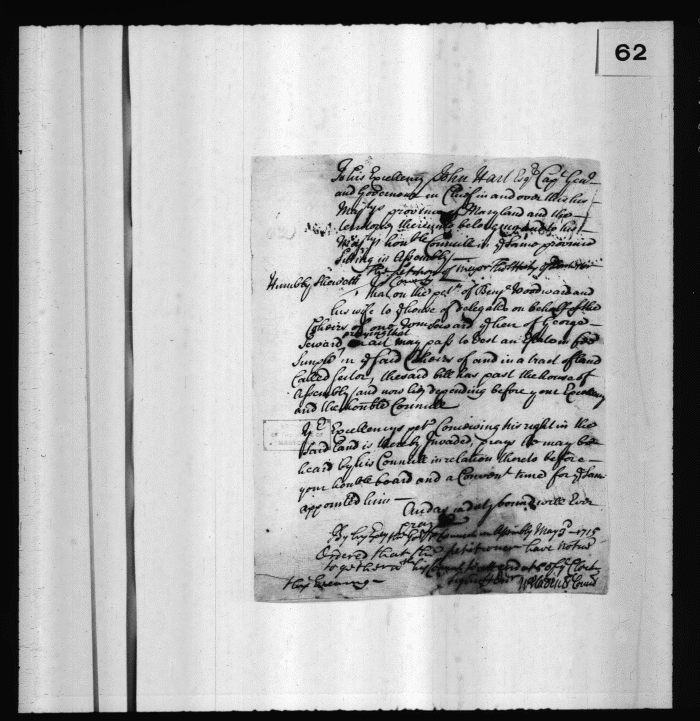 62
To his Excellency John Hart Esqr. Capt. Genl.
and Governour in Chief in and over this his
Majtys province of Maryland and the
territorys thereunto belonging and to his
Majtys honble Councill in ye same province
Sitting in Assembly
The petition of
Humbly Sheweth
That on the petn. of Benja. Woodward and
his wife to ye house of delegates on behalf of the
Coheirs of one Seward ye heir of George
Seward, praying that an act may pass to vest an Estate in fee
Simple in ye said Coheirs of and in a tract of land
Called the said bill has past the house of
Assembly and now lies depending before your Excellency
and the honble Councill
Yr. Excellencys petr. Conceiving his right in the
Said land is thereby Invaded, prays he may be
heard by his Councill in relation thereto before
your honble board and a Convent. time for ye same
appointed him
And as in duty bound will Ever
pray
By his Excy the Govr. & Councill in Assembly May 3d. 1715
Ordered that the petitioner have notice
together wth. his Councill to attend at of ye Clock
this Evening